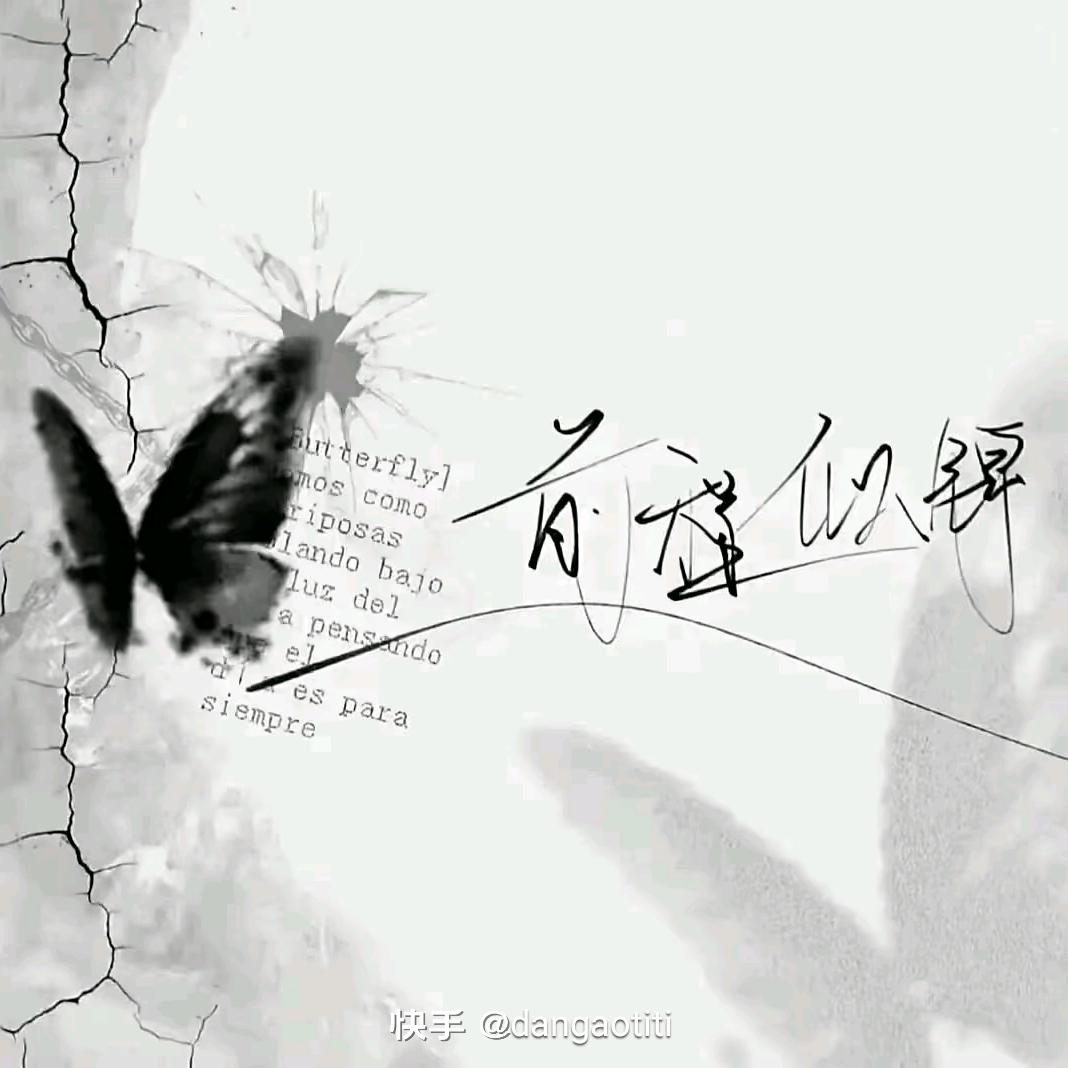 Butterfly]
omos como
riposas
lando bajo
luz del
a pensando
el
es para
siempre
前程似锦
快手 @dangaotiti